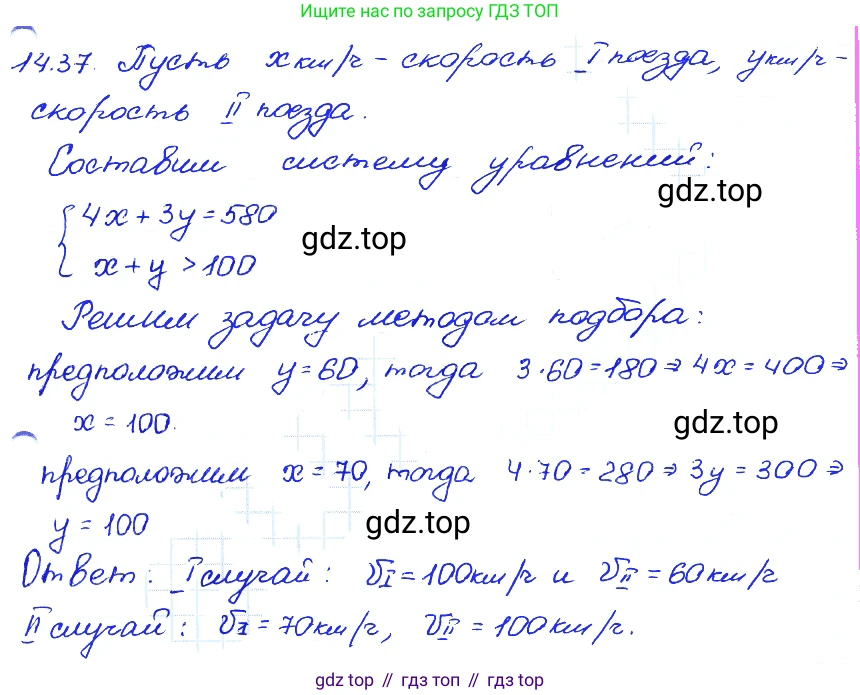 Ищите нас по запросу ГДЗ ТОП
14.37. Пусть x км/ч - скорость I поезда, y км/ч -
скорость II поезда.
Составим систему уравнений:
gdz.top
{ 4x + 3y = 580
gdz.top
x + y > 100
Решим задачу методом подбора:
предположим y = 60, тогда 3·60 = 180 ⇒ 4x = 400 ⇒
x = 100.
gdz.top
предположим x = 70, тогда 4·70 = 280 ⇒ 3y = 300 ⇒
y = 100
gdz.top
Ответ: I случай: V_I = 100 км/ч и V_II = 60 км/ч
II случай: V_I = 70 км/ч, V_II = 100 км/ч.
gdz.top // гдз топ // gdz.top // гдз топ